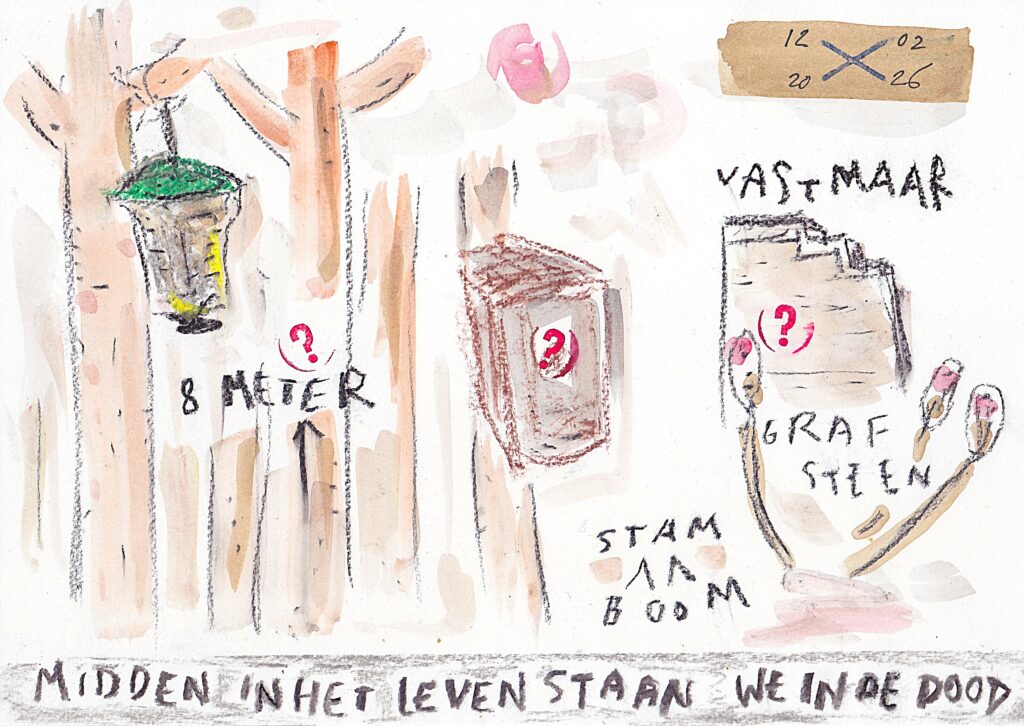 12 X 02
20 26
VAST MAAR
?
?
?
8 METER
GRAF
STEEN
STAM
BOOM
MIDDEN IN HET LEVEN STAAN WE IN DE DOOD